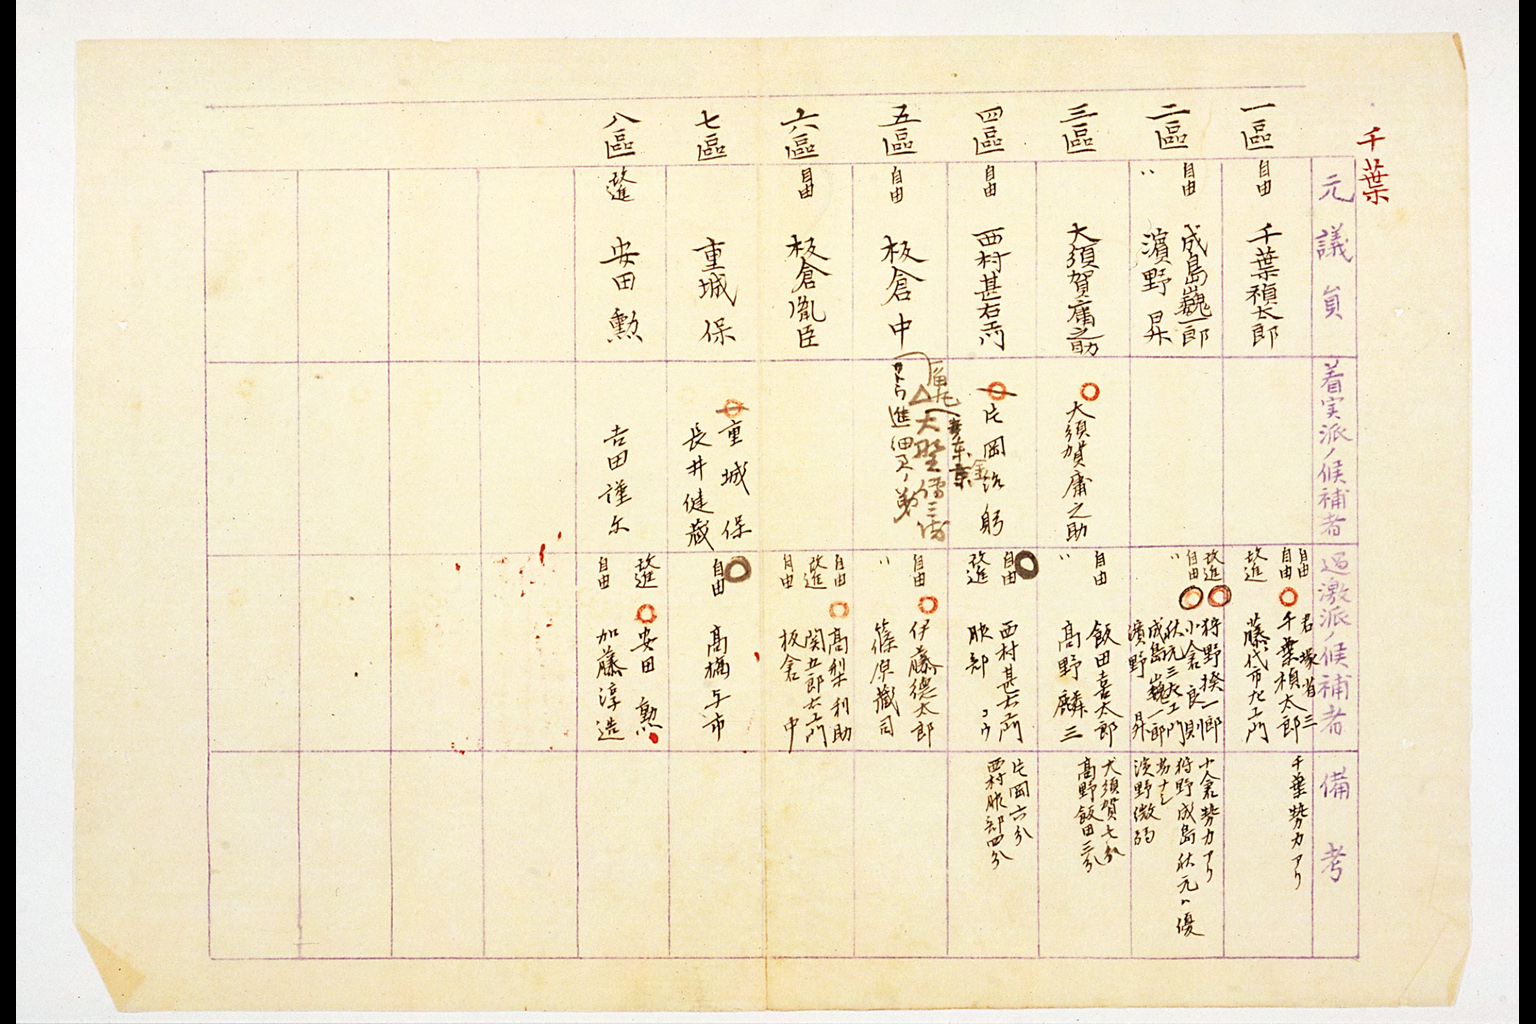 千葉
元議員
着実派ノ候補者
過激派ノ候補者
備考
一區
自由
千葉禎太郎
自由
君塚省三
自由
千葉禎太郎
改進
藤代市左エ門
千葉勢力アリ
二區
自由
成島巍一郎
〃
濱野昇
改進
狩野揆一郎
自由
小倉良則
秋元三左エ門
〃
成島巍一郎
濱野昇
小倉勢力アリ
狩野成島秋元ハ優
劣ナシ
濱野微弱
三區
大須賀庸之助
大須賀庸之助
自由
飯田喜太郎
〃
高野麟三
大須賀七分
高野飯田三分
四區
自由
西村甚右衛門
片岡治躬
自由
西村甚右衛門
改進
服部
片岡六分
西村服部四分
五區
自由
板倉中
大野伝三衛
東京
自由
伊藤徳太郎
〃
篠原蔵司
六區
自由
板倉胤臣
自由
高梨利助
改進
関五郎右エ門
自由
板倉中
七區
重城保
重城保
長井健蔵
自由
高橋与市
八區
改進
安田勲
吉田謹尓
改進
安田勲
自由
加藤淳造